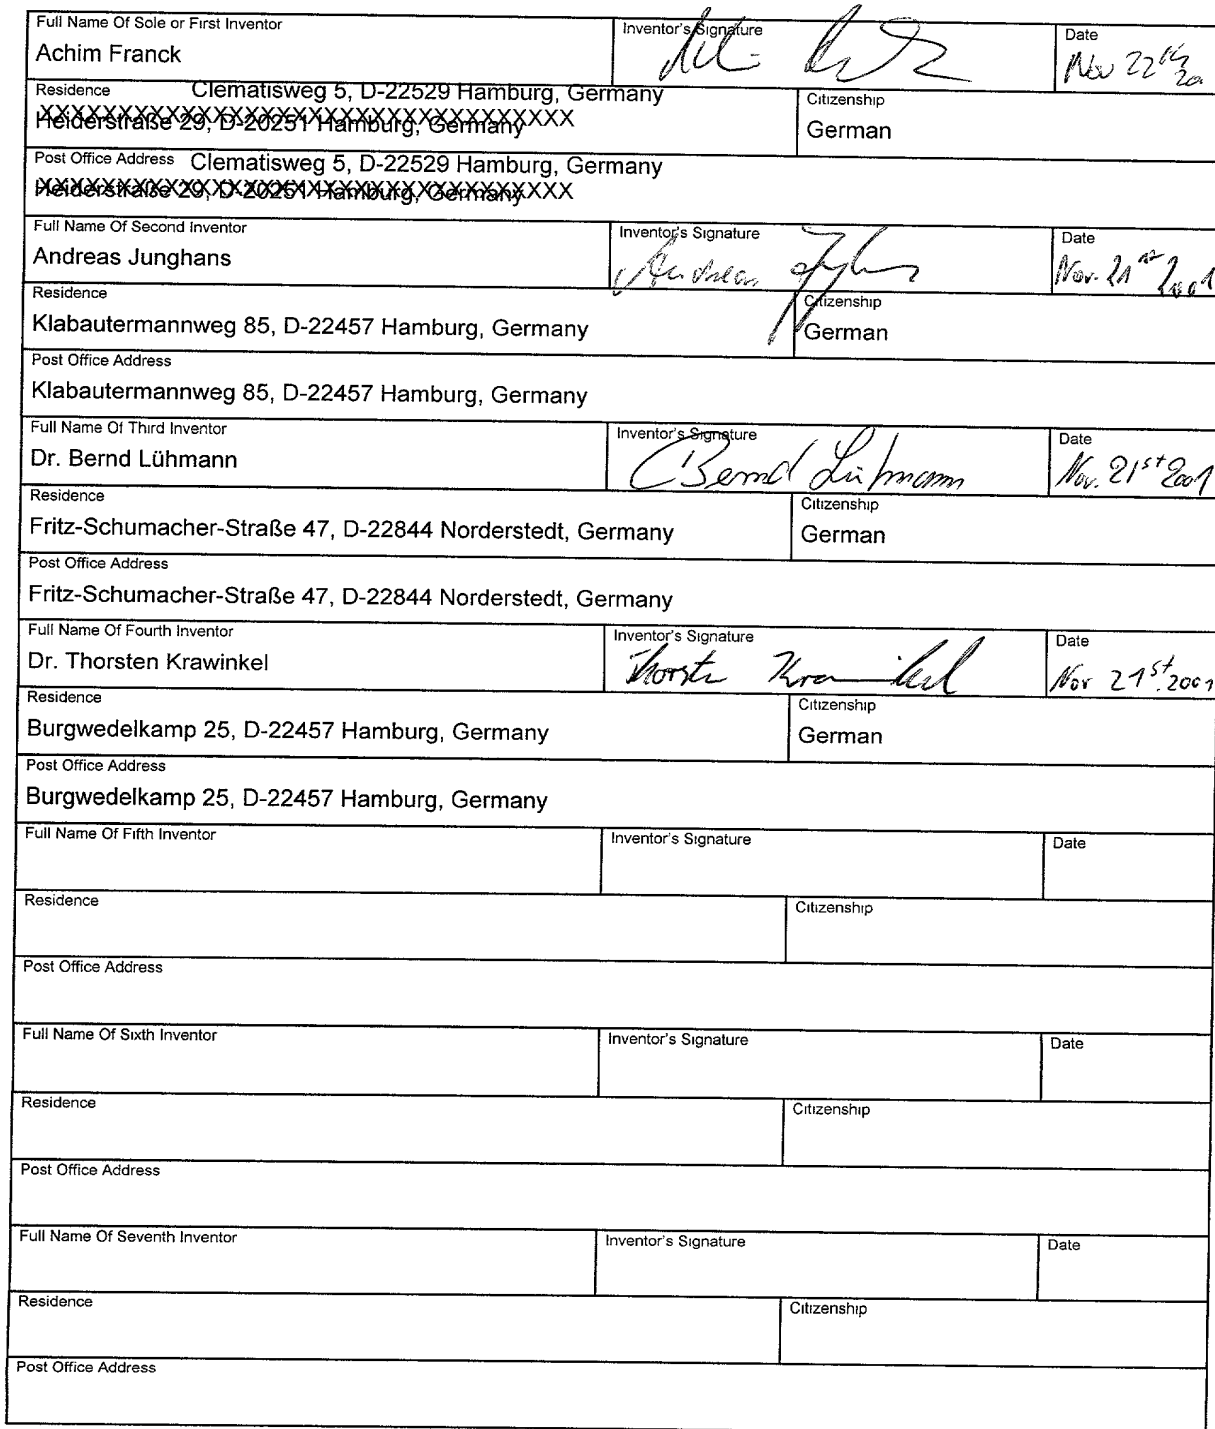 Full Name Of Sole or First Inventor Inventor's Signature Date
Achim Franck Nov 22
Residence Clematisweg 5, D-22529 Hamburg, Germany Citizenship
Heiderstraße 29, D-20251 Hamburg, Germany German
Post Office Address Clematisweg 5, D-22529 Hamburg, Germany
Heiderstraße 29, D-20251 Hamburg, Germany
Full Name Of Second Inventor Inventor's Signature Date
Andreas Junghans Andreas Nov. 21st 2001
Residence Citizenship
Klabautermannweg 85, D-22457 Hamburg, Germany German
Post Office Address
Klabautermannweg 85, D-22457 Hamburg, Germany
Full Name Of Third Inventor Inventor's Signature Date
Dr. Bernd Lühmann Bernd Lühmann Nov. 21st 2001
Residence Citizenship
Fritz-Schumacher-Straße 47, D-22844 Norderstedt, Germany German
Post Office Address
Fritz-Schumacher-Straße 47, D-22844 Norderstedt, Germany
Full Name Of Fourth Inventor Inventor's Signature Date
Dr. Thorsten Krawinkel Thorsten Krawinkel Nov 21st. 2001
Residence Citizenship
Burgwedelkamp 25, D-22457 Hamburg, Germany German
Post Office Address
Burgwedelkamp 25, D-22457 Hamburg, Germany
Full Name Of Fifth Inventor Inventor's Signature Date
Residence Citizenship
Post Office Address
Full Name Of Sixth Inventor Inventor's Signature Date
Residence Citizenship
Post Office Address
Full Name Of Seventh Inventor Inventor's Signature Date
Residence Citizenship
Post Office Address